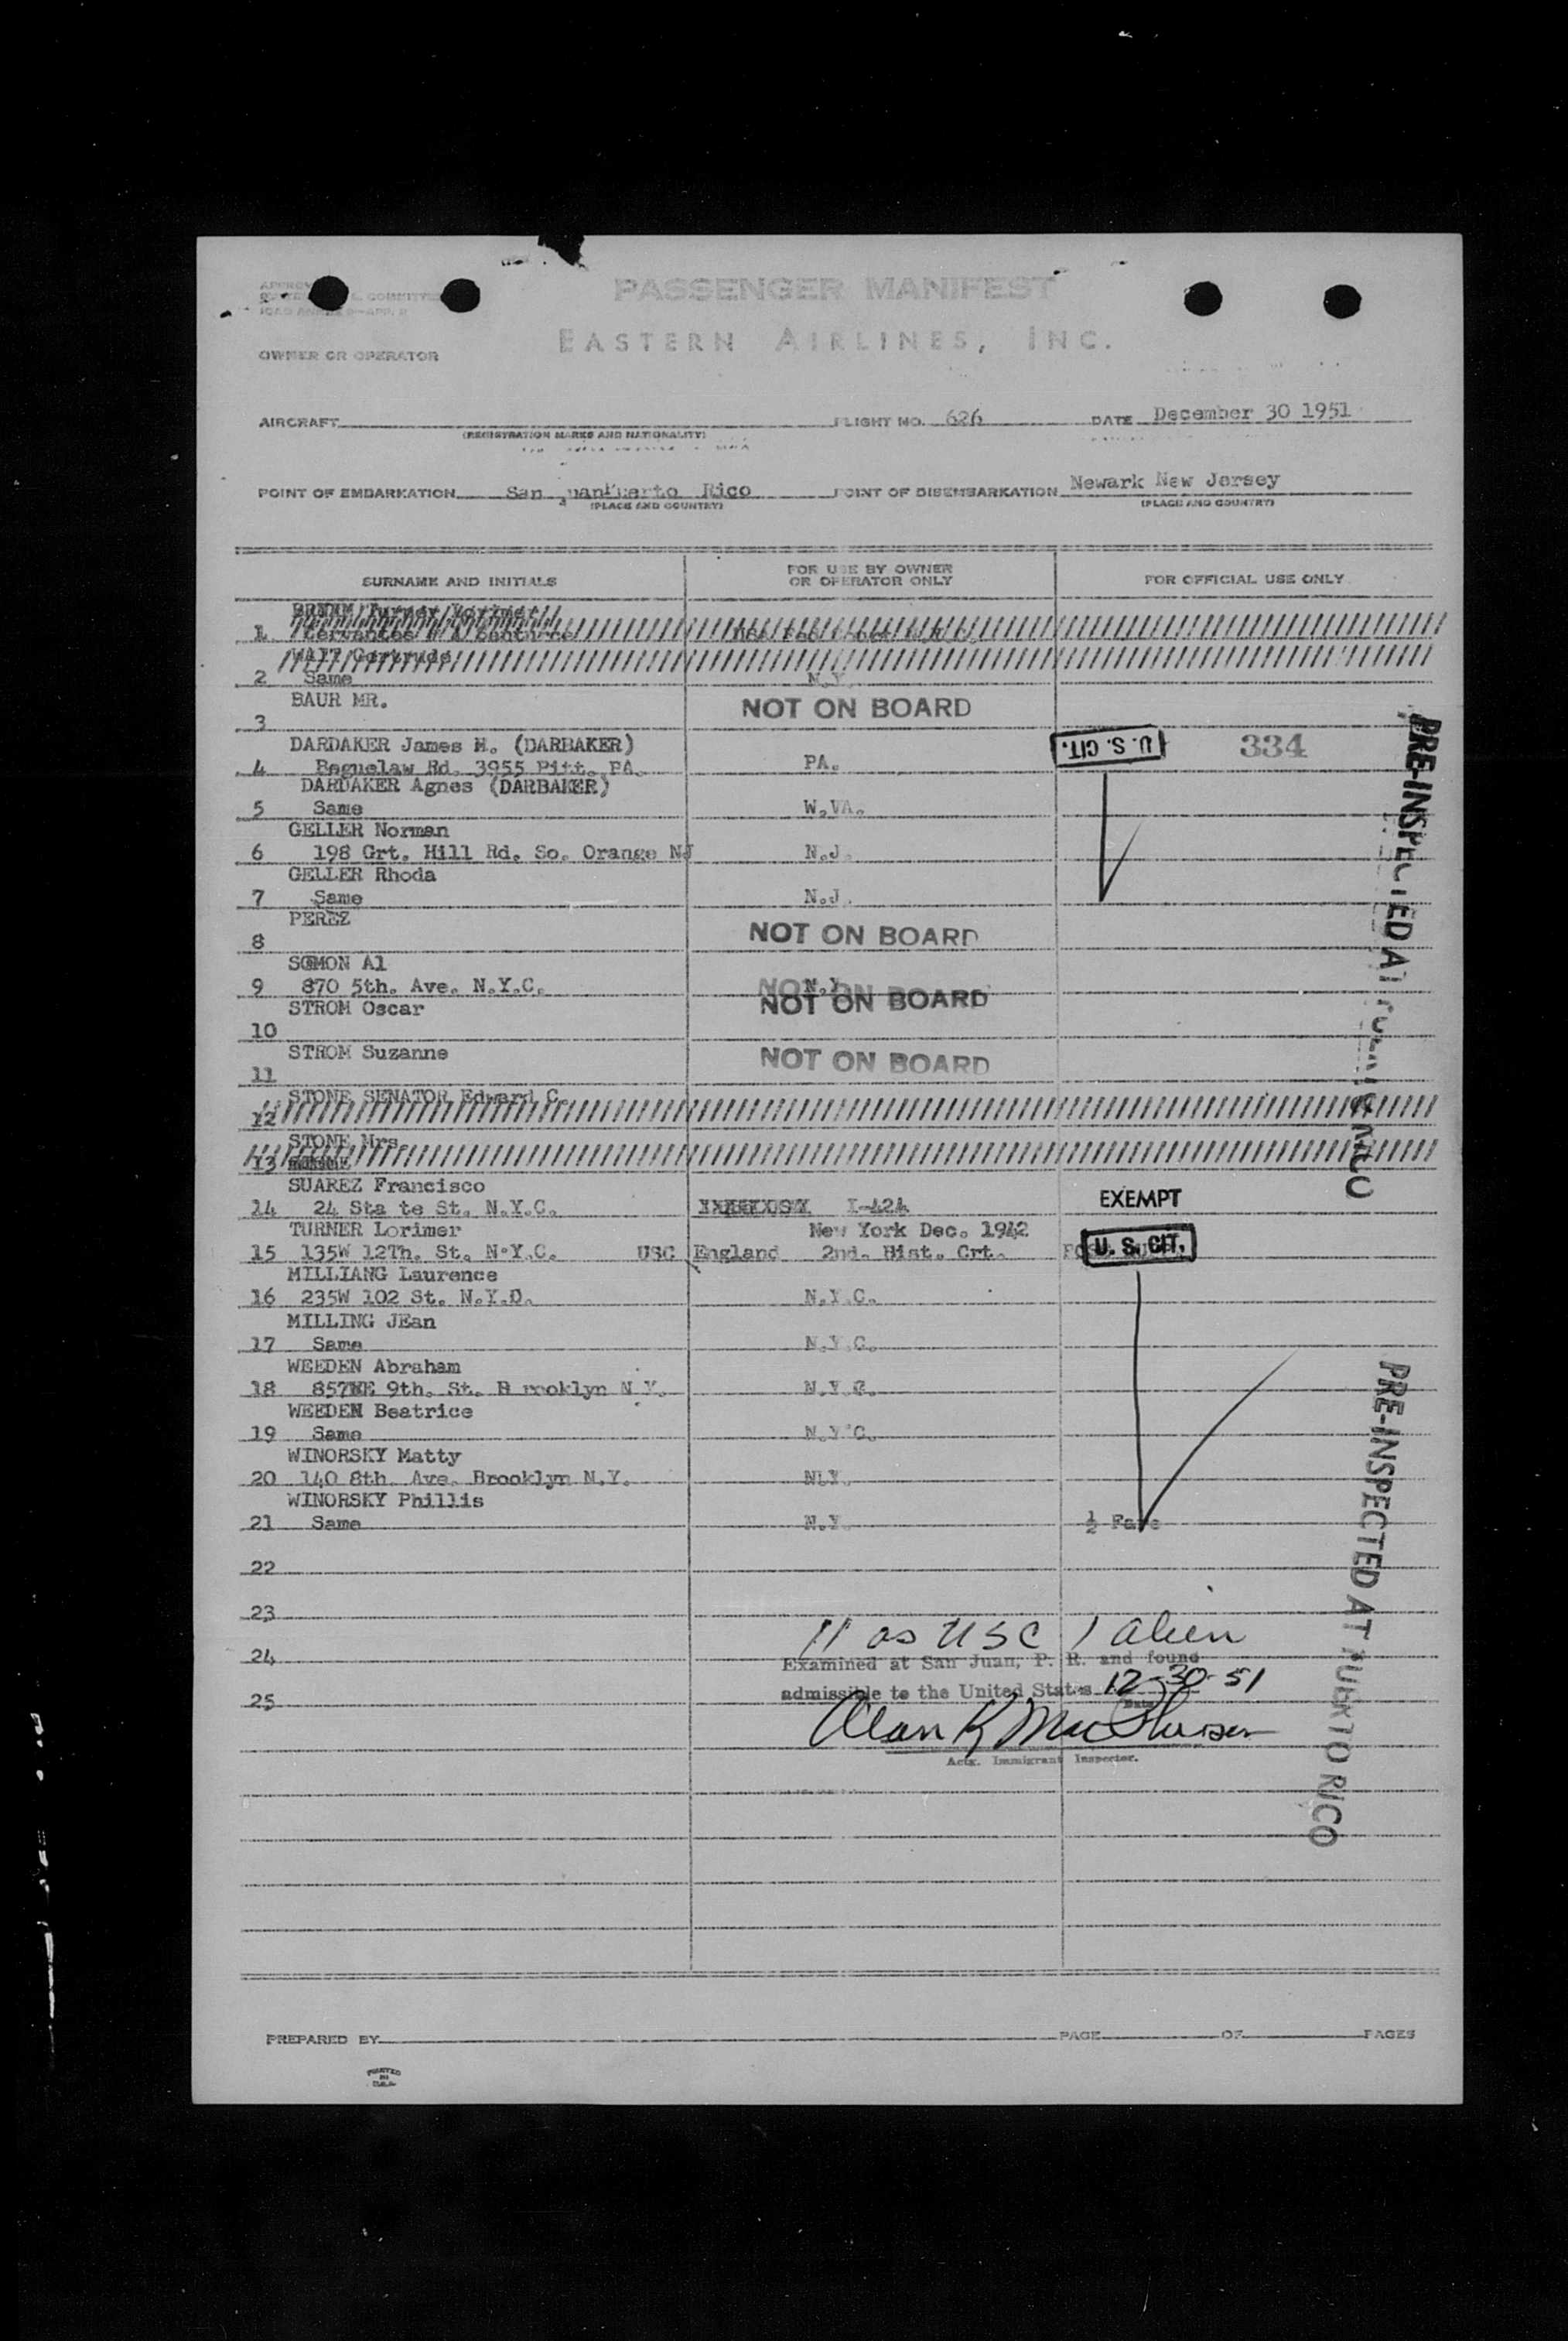 PASSENGER MANIFEST
EASTERN AIRLINES, INC.
OWNER OR OPERATOR
AIRCRAFT FLIGHT NO. 626 DATE December 30 1951
(REGISTRATION MARKS AND NATIONALITY)
POINT OF EMBARKATION San Juan Puerto Rico POINT OF DISEMBARKATION Newark New Jersey
(PLACE AND COUNTRY) (PLACE AND COUNTRY)
SURNAME AND INITIALS FOR USE BY OWNER OR OPERATOR ONLY FOR OFFICIAL USE ONLY
1
Gertrude
2 Same N.Y.
BAUR MR. NOT ON BOARD
3
DARDAKER James M. (DARBAKER) U. S. CIT. 334
4 Rd. 3955 Pitt. PA. PA.
DARDAKER Agnes (DARBAKER)
5 Same W.VA.
GELLER Norman
6 198 Grt. Hill Rd. So. Orange NJ N.J.
GELLER Rhoda
7 Same N.J.
PEREZ NOT ON BOARD
8
Al
9 870 5th. Ave. N.Y.C. N.Y. NOT ON BOARD
STROM Oscar NOT ON BOARD
10
STROM Suzanne NOT ON BOARD
11
STONE SENATOR Edward C.
12
STONE Mrs.
13
SUAREZ Francisco
14 24 Sta te St. N.Y.C. I-424 EXEMPT
TURNER Lorimer New York Dec. 1942
15 135W 12Th. St. N.Y.C. USC England 2nd. Dist. Crt. U. S. CIT.
MILLIANG Laurence
16 235W 102 St. N.Y.D. N.Y.C.
MILLING JEan
17 Same N.Y.C.
WEEDEN Abraham
18 9th. St. B rooklyn N.Y. N.Y.C.
WEEDEN Beatrice
19 Same N.Y.C.
WINORSKY Matty
20 140 8th. Ave. Brooklyn N.Y. N.Y.
WINORSKY Phillis
21 Same N.Y. ½ Fare
22
23
11 as USC 1 alien
24 Examined at San Juan, P. R. and found
25 admissible to the United States 12-30-51
Actg. Immigrant Inspector.
PRE-INSPECTED AT PUERTO RICO
PRE-INSPECTED AT PUERTO RICO
PREPARED BY PAGE OF PAGES
PRINTED
IN
U.S.A.